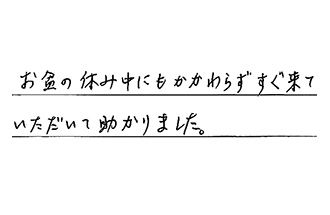 お盆の休み中にもかかわらずすぐ来て
いただいて助かりました。